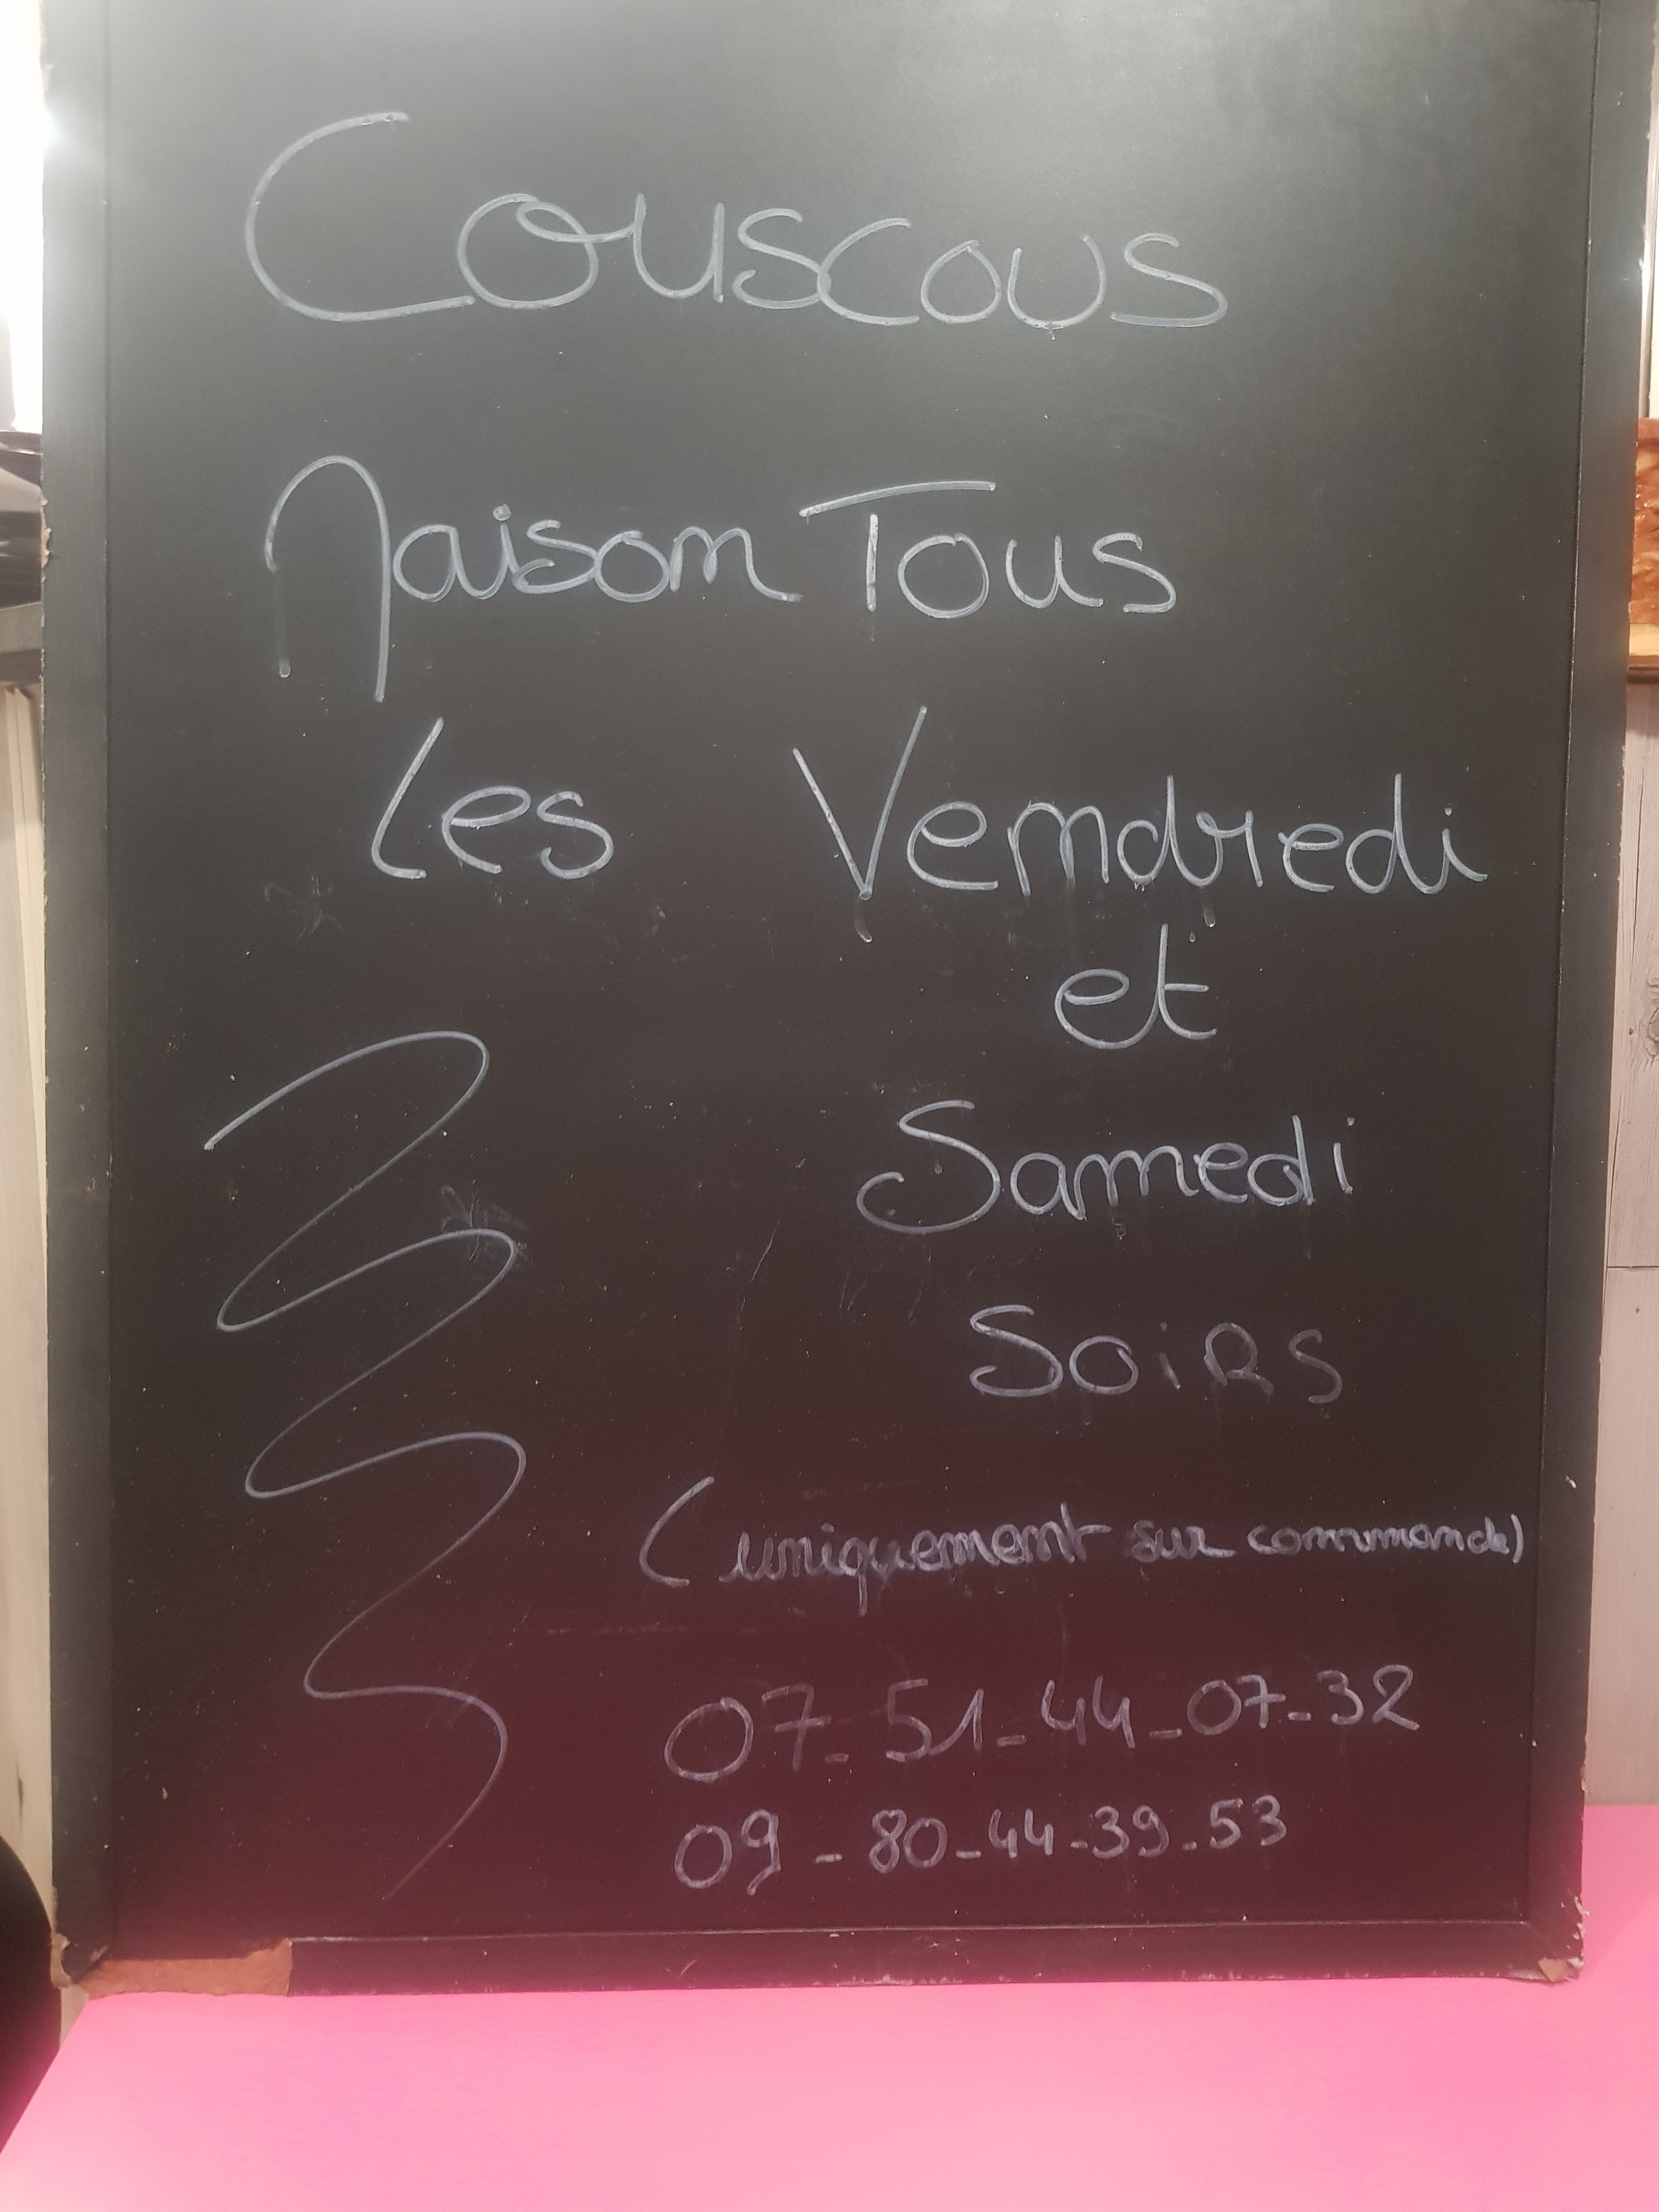 Couscous
Maison Tous
Les Vendredi
et
Samedi
Soirs
(uniquement sur commande)
07-51-44-07-32
09-80-44-39-53